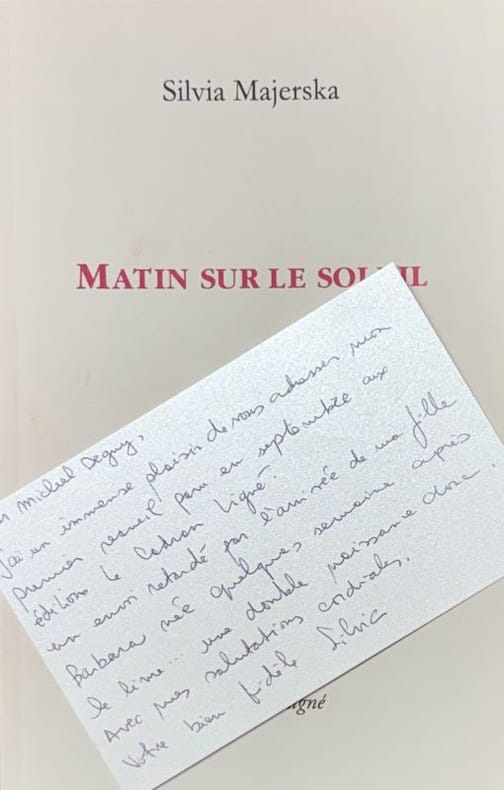 Silvia Majerska
MATIN SUR LE SOLEIL
Michel Deguy,
J'ai un immense plaisir de vous adresser mon
premier recueil paru en septembre aux
éditions le Cadran ligné.
un envoi retardé par l'arrivée de ma fille
Barbara née quelques semaine après
le livre... une double naissance donc.
Avec mes salutations cordiales,
Votre bien fidèle Silvia
igné